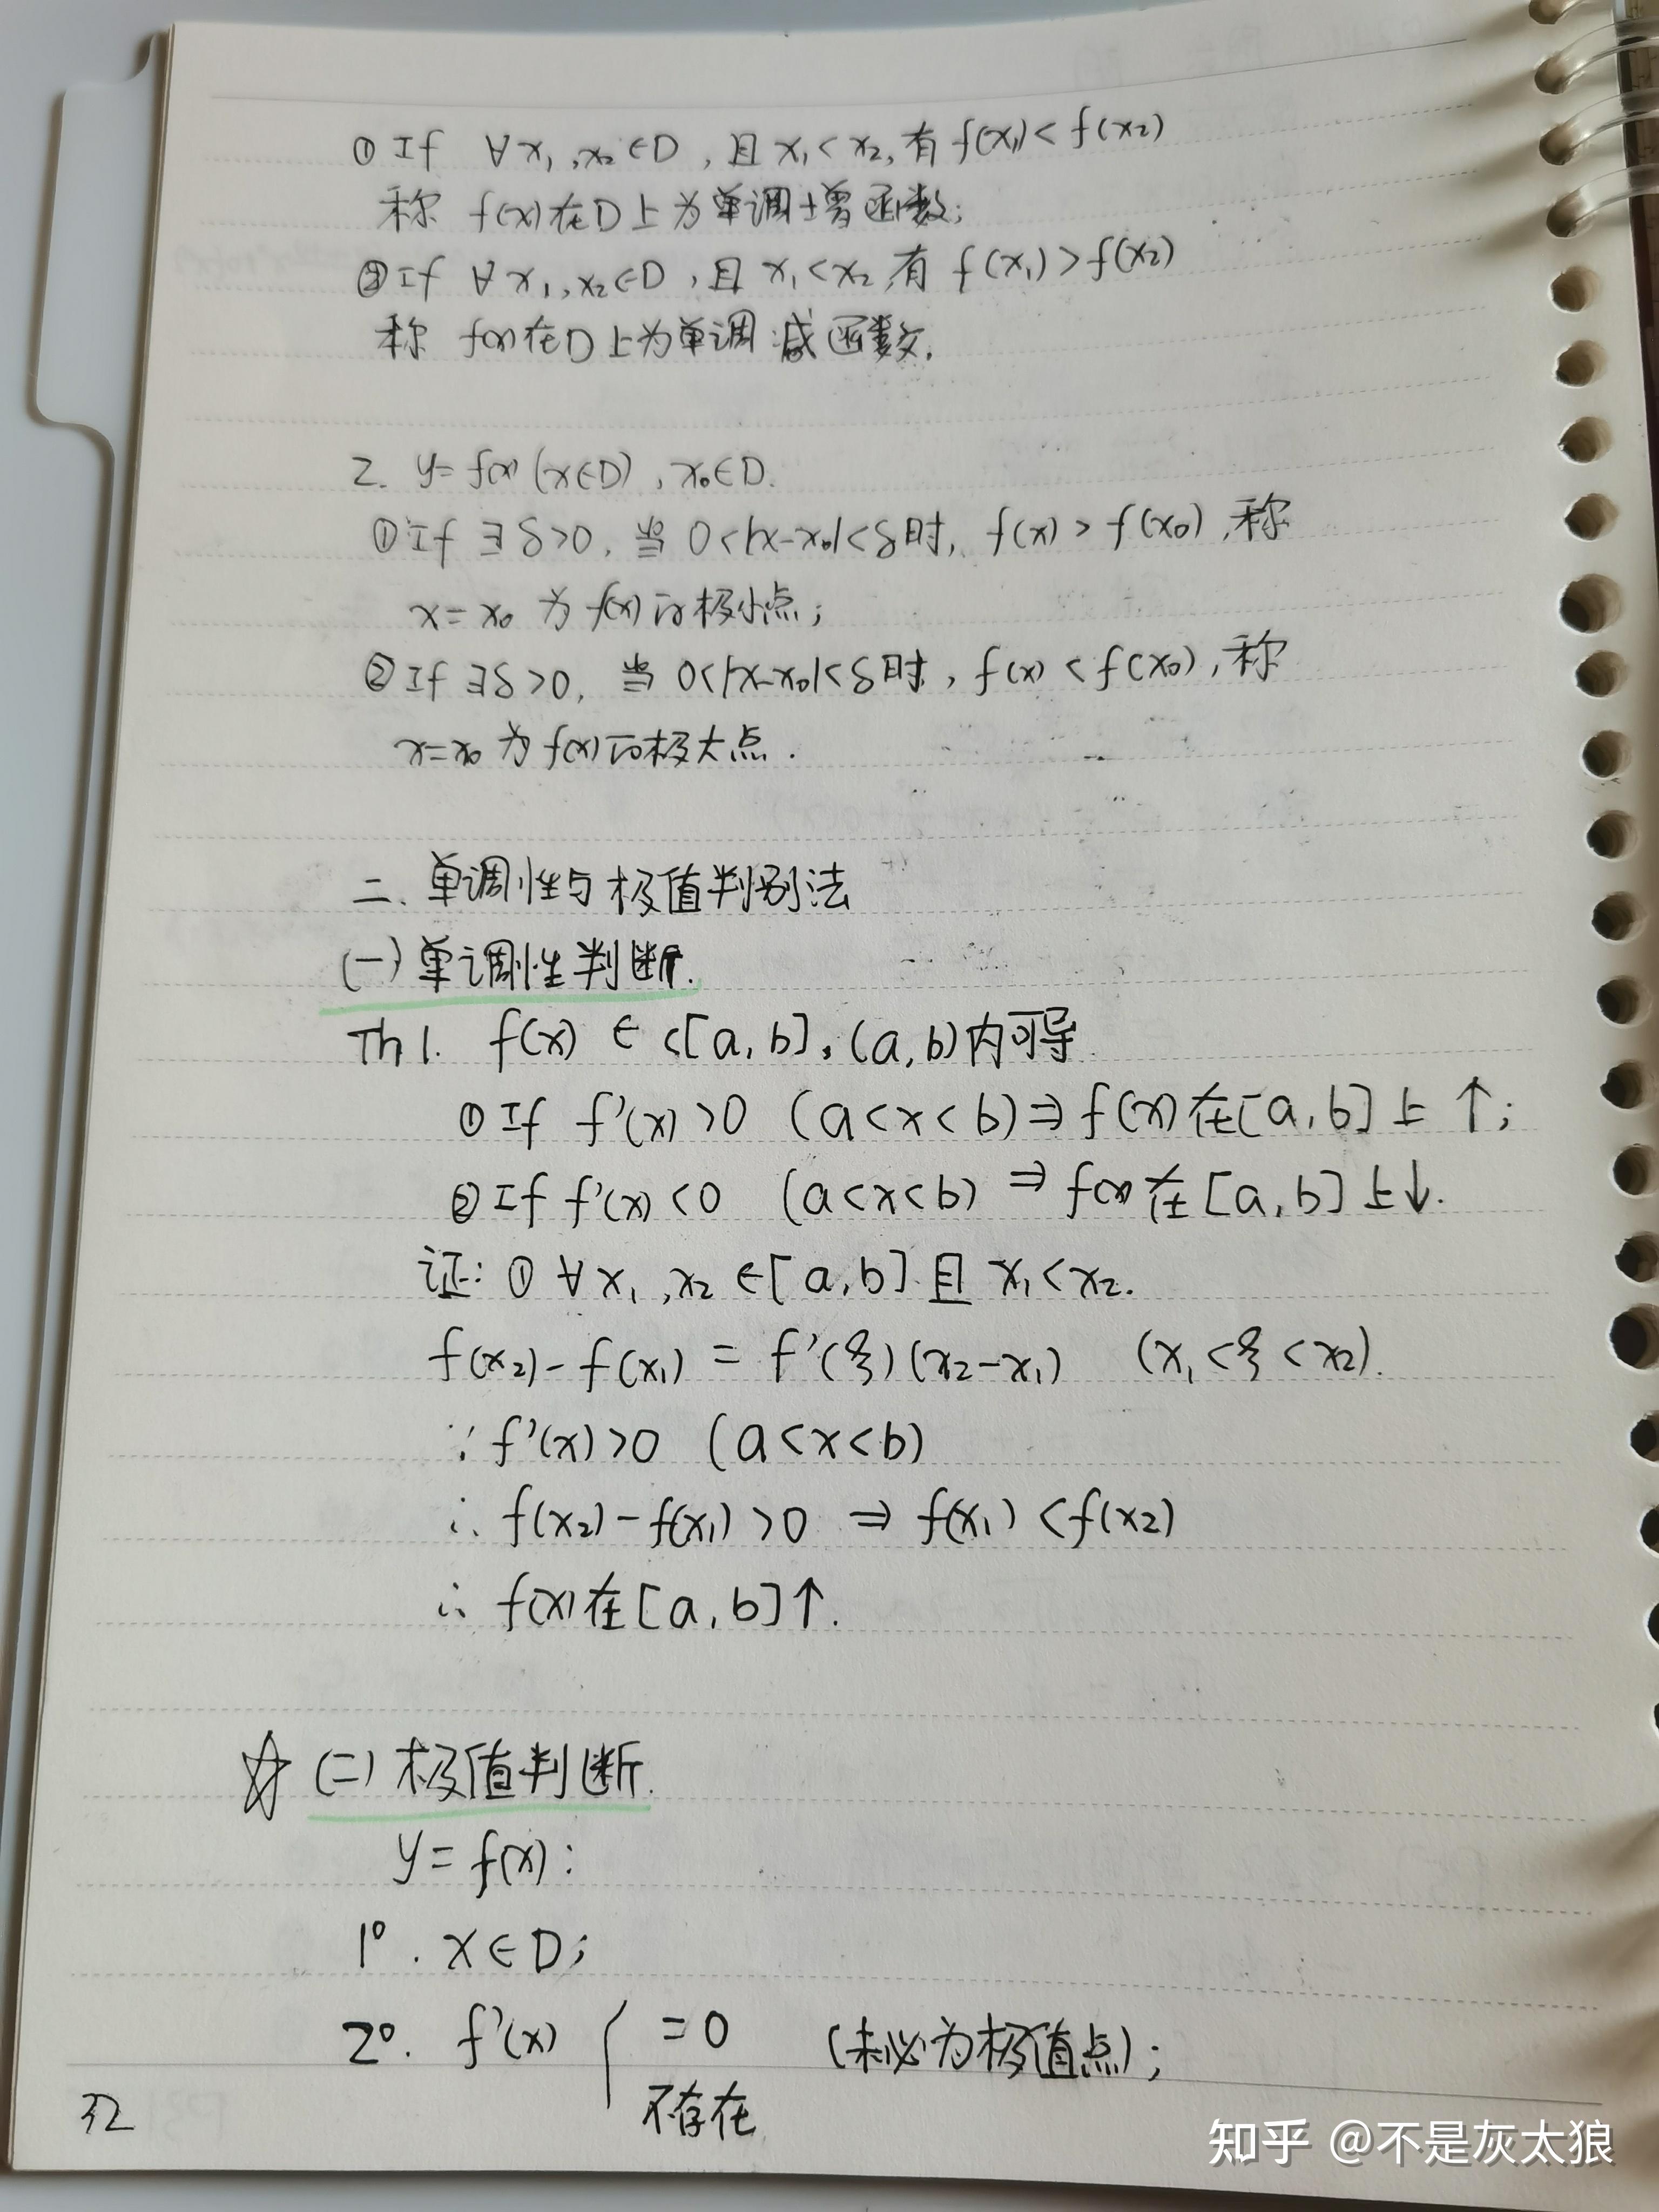 ① If ∀x₁,x₂∈D,且 x₁<x₂,有 f(x₁)<f(x₂)
称 f(x)在D上为单调增函数;
② If ∀x₁,x₂∈D,且 x₁<x₂,有 f(x₁)>f(x₂)
称 f(x)在D上为单调减函数.
2. y=f(x)(x∈D),x₀∈D.
① If ∃δ>0,当 0<|x-x₀|<δ时,f(x)>f(x₀),称
x=x₀ 为 f(x)的极小点;
② If ∃δ>0,当 0<|x-x₀|<δ时,f(x)<f(x₀),称
x=x₀ 为 f(x)的极大点.
二、单调性与极值判别法
(一)单调性判断.
Th1. f(x)∈C[a,b],(a,b)内可导.
① If f'(x)>0 (a<x<b)⇒f(x)在[a,b]上↑;
② If f'(x)<0 (a<x<b) ⇒ f(x)在[a,b]上↓.
证: ① ∀x₁,x₂∈[a,b]且 x₁<x₂.
f(x₂)-f(x₁)=f'(ξ)(x₂-x₁) (x₁<ξ<x₂).
∵ f'(x)>0 (a<x<b)
∴ f(x₂)-f(x₁)>0 ⇒ f(x₁)<f(x₂)
∴ f(x)在[a,b]↑.
☆ (二)极值判断.
y=f(x):
1°. x∈D;
2°. f'(x) { =0 (未必为极值点);
不存在
32
知乎 @不是灰太狼